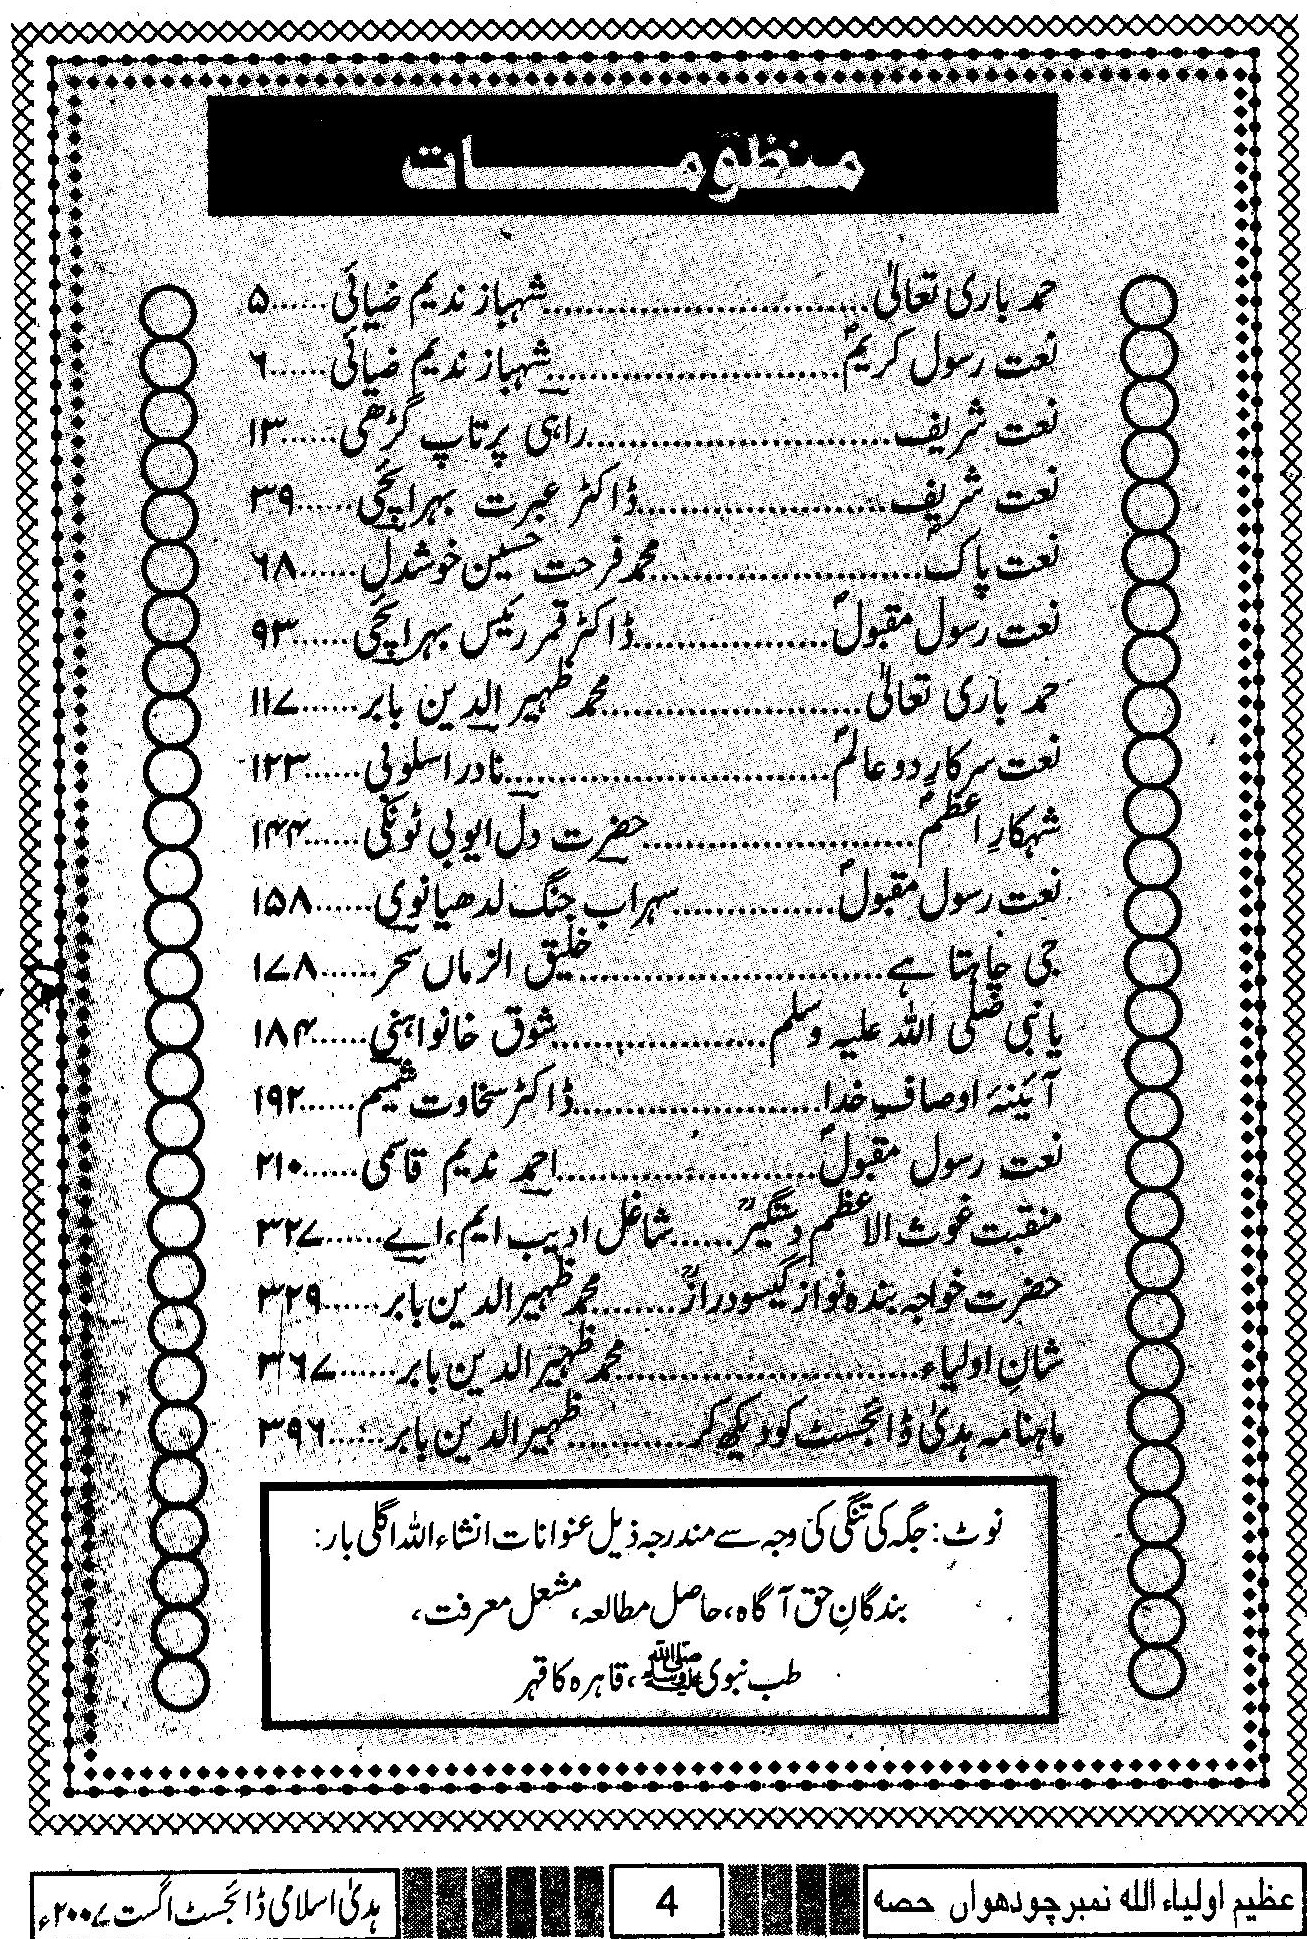 منظومات
حمد باری تعالیٰ.........................شہباز ندیم ضیائی......۵
نعت رسول کریمؐ.........................شہباز ندیم ضیائی......۶
نعت شریف.........................راہی پرتاپ گڑھی......۱۳
نعت شریف.........................ڈاکٹر عبرت بہرائچی......۳۹
نعت پاکؐ.........................محمد فرحت حسین خوشدل......۶۸
نعت رسول مقبولؐ.................ڈاکٹر قمر رئیس بہرائچی......۹۳
حمد باری تعالیٰ.........................محمد ظہیر الدین بابر......۱۱۷
نعت سرکارِ دو عالمؐ.........................نادر اسلوبی......۱۲۳
شہکارِ اعظمؐ.........................حضرت دل ایوبی ٹونکی......۱۴۴
نعت رسول مقبولؐ.............سہراب جنگ لدھیانوی......۱۵۸
جی چاہتا ہے.........................خلیق الزماں سحر......۱۷۸
یا نبی صلی اللہ علیہ وسلم.................شوق خانواہنی......۱۸۴
آئینۂ اوصافِ خدا.....................ڈاکٹر سخاوت شمیم......۱۹۲
نعت رسول مقبولؐ.....................احمد ندیم قاسمی......۲۱۰
منقبت غوث الاعظم دستگیرؒ......شاغل ادیب ایم، اے......۳۲۷
حضرت خواجہ بندہ نواز گیسودرازؒ........محمد ظہیر الدین بابر......۳۲۹
شانِ اولیاء.........................محمد ظہیر الدین بابر......۳۶۷
ماہنامہ ہدیٰ ڈائجسٹ کو دیکھ کر..........ظہیر الدین بابر......۳۹۶
نوٹ: جگہ کی تنگی کی وجہ سے مندرجہ ذیل عنوانات انشاء اللہ اگلی بار:
بندگانِ حق آگاہ، حاصل مطالعہ، مشعل معرفت،
طب نبوی ﷺ، قاہرہ کا قہر
عظیم اولیاء الله نمبر چودھواں حصه 4 ہدیٰ اسلامی ڈائجسٹ اگست ۲۰۰۷ء